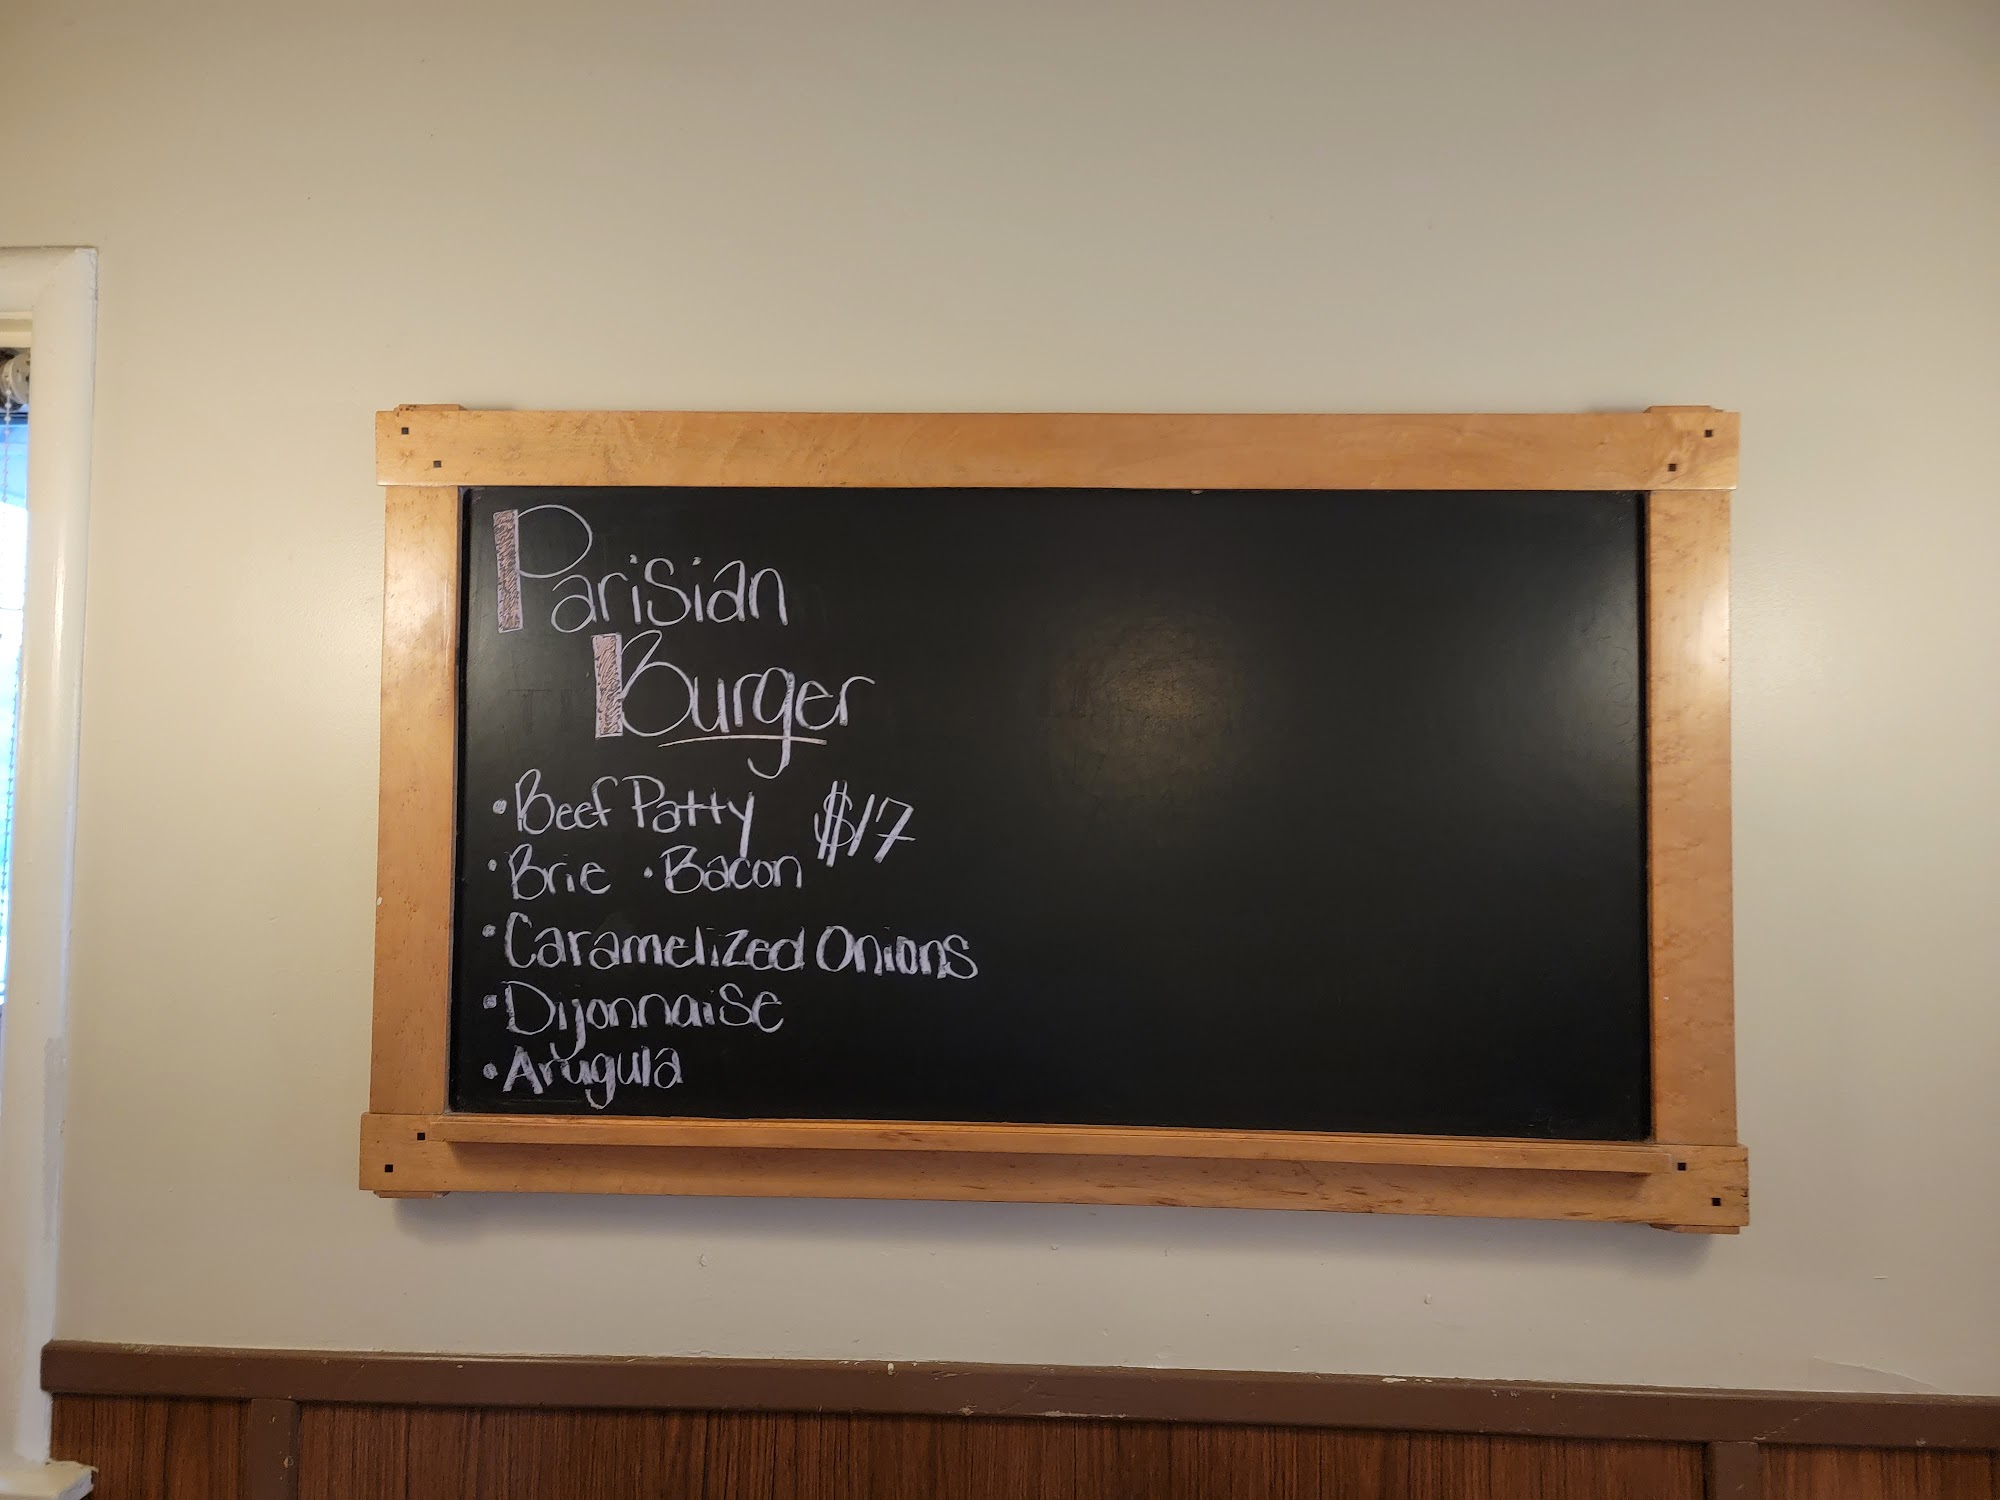 Parisian
Burger
• Beef Patty $17
• Brie • Bacon
• Caramelized Onions
• Dijonnaise
• Arugula